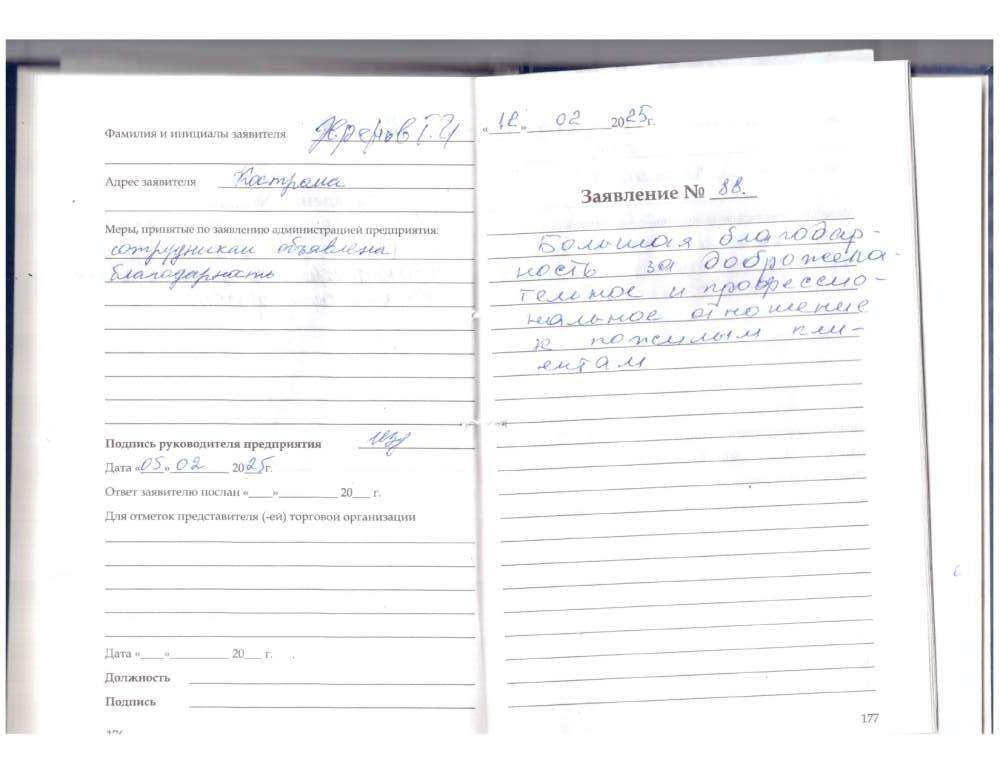 Фамилия и инициалы заявителя
Адрес заявителя Кострома
Меры, принятые по заявлению администрацией предприятия:
сотрудникам объявлена
благодарность
Подпись руководителя предприятия
Дата «05»02 2025г.
Ответ заявителю послан «____»__________ 20___ г.
Для отметок представителя (-ей) торговой организации
Дата «____»__________ 20___ г.
Должность
Подпись
«12» 02 2025г.
Заявление № 88.
Большая благодар-
ность за доброжела-
тельное и професcио-
нальное отношение
к пожилым кли-
ентам
177